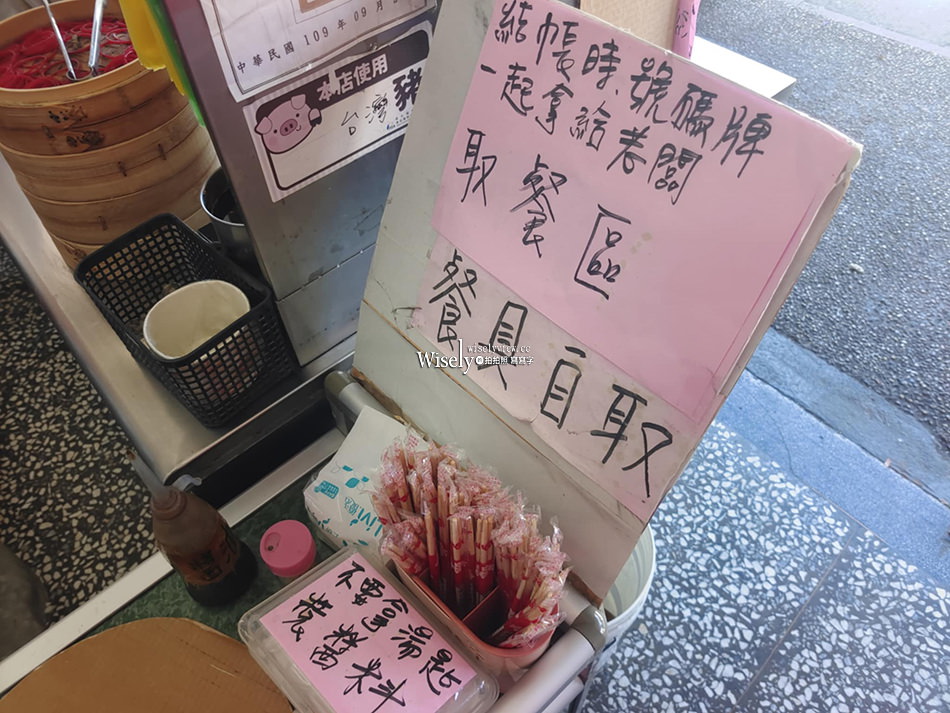 中華民國 109 年 09 月
本店使用
台灣 豬
結帳時號碼牌
一起拿給老闆
取餐區
餐具自取
wiselyview.cc
Wisely拍拍照寫寫字
不要拿湯匙
裝醬料